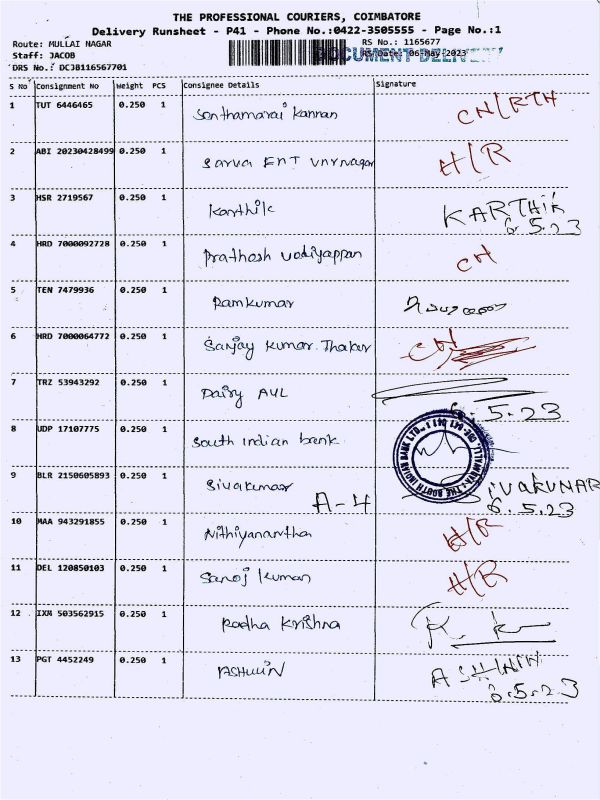 THE PROFESSIONAL COURIERS, COIMBATORE
Delivery Runsheet - P41 - Phone No.:0422-3505555 - Page No.:1
Route: MULLAI NAGAR RS No.: 1165677
Staff: JACOB RS Date: 06-May-2023
DRS No.: DCJ8116567701
DOCUMENT DELIVERY
S No Consignment No Weight PCS Consignee Details Signature
1 TUT 6446465 0.250 1 Senthamarai kannan CH/RTH
2 ABI 20230428499 0.250 1 Sarva ENT H/R
3 HSR 2719567 0.250 1 Karthik KARTHIK
6.5.23
4 HRD 7000092728 0.250 1 Prathosh vadiyappan CH
5 TEN 7479936 0.250 1 Ramkumar
6 HRD 7000064772 0.250 1 Sanjay Kumar Thakur CH
7 TRZ 53943292 0.250 1 Dairy AVL
6.5.23
8 UDP 17107775 0.250 1 South indian bank
THE SOUTH INDIAN BANK LTD.
9 BLR 2150605893 0.250 1 Sivakumar A-4 SIVAKUMAR
6.5.23
10 MAA 943291855 0.250 1 Nithiyanantha H/R
11 DEL 120850103 0.250 1 Sanoj Kuman H/R
12 IXM 503562915 0.250 1 Radha Krishna
13 PGT 4452249 0.250 1 ASHWIN ASHWIN
6.5.23